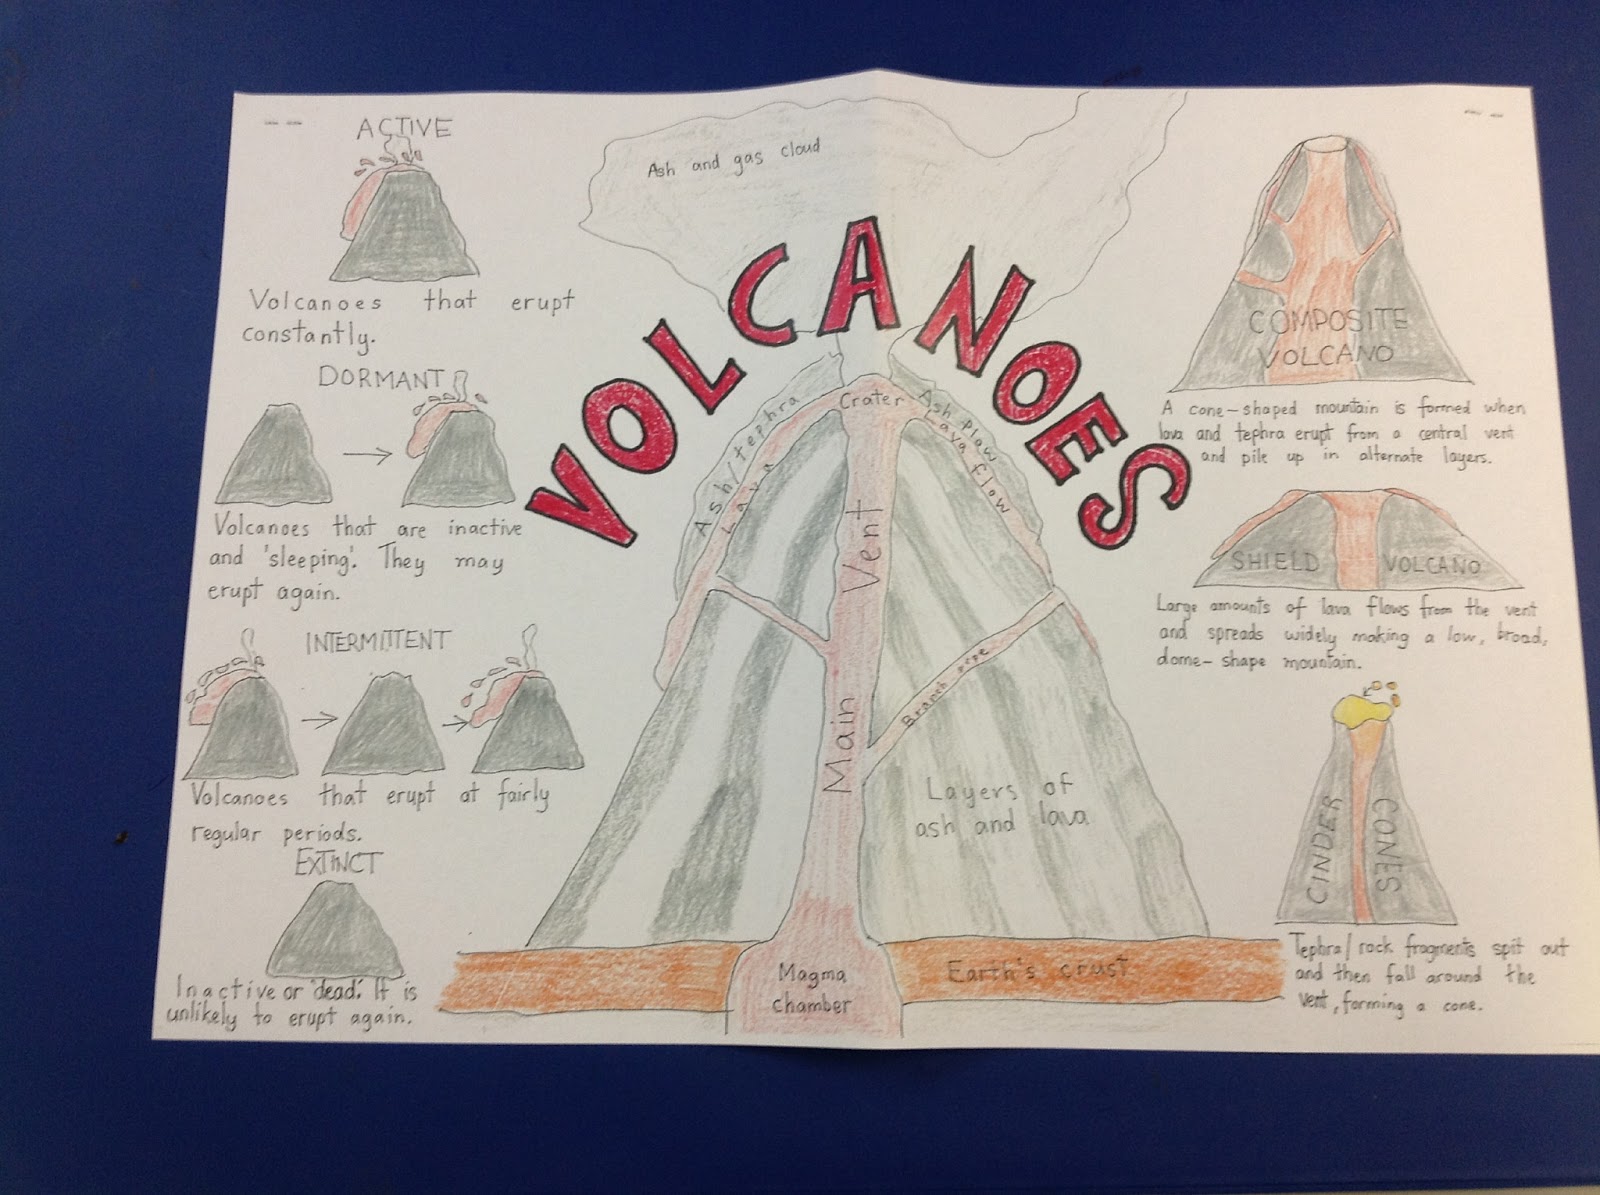 VOLCANOES
ACTIVE
Volcanoes that erupt
constantly.
DORMANT
Volcanoes that are inactive
and 'sleeping'. They may
erupt again.
INTERMITTENT
Volcanoes that erupt at fairly
regular periods.
EXTINCT
Inactive or 'dead'. It is
unlikely to erupt again.
Ash and gas cloud
Crater
Ash/tephra
Lava
Ash flow
Lava flow
Main Vent
Branch pipe
Layers of
ash and lava
Magma
chamber
Earth's crust
COMPOSITE
VOLCANO
A cone-shaped mountain is formed when
lava and tephra erupt from a central vent
and pile up in alternate layers.
SHIELD VOLCANO
Large amounts of lava flows from the vent
and spreads widely making a low, broad,
dome-shape mountain.
CINDER CONES
Tephra/rock fragments spit out
and then fall around the
vent, forming a cone.